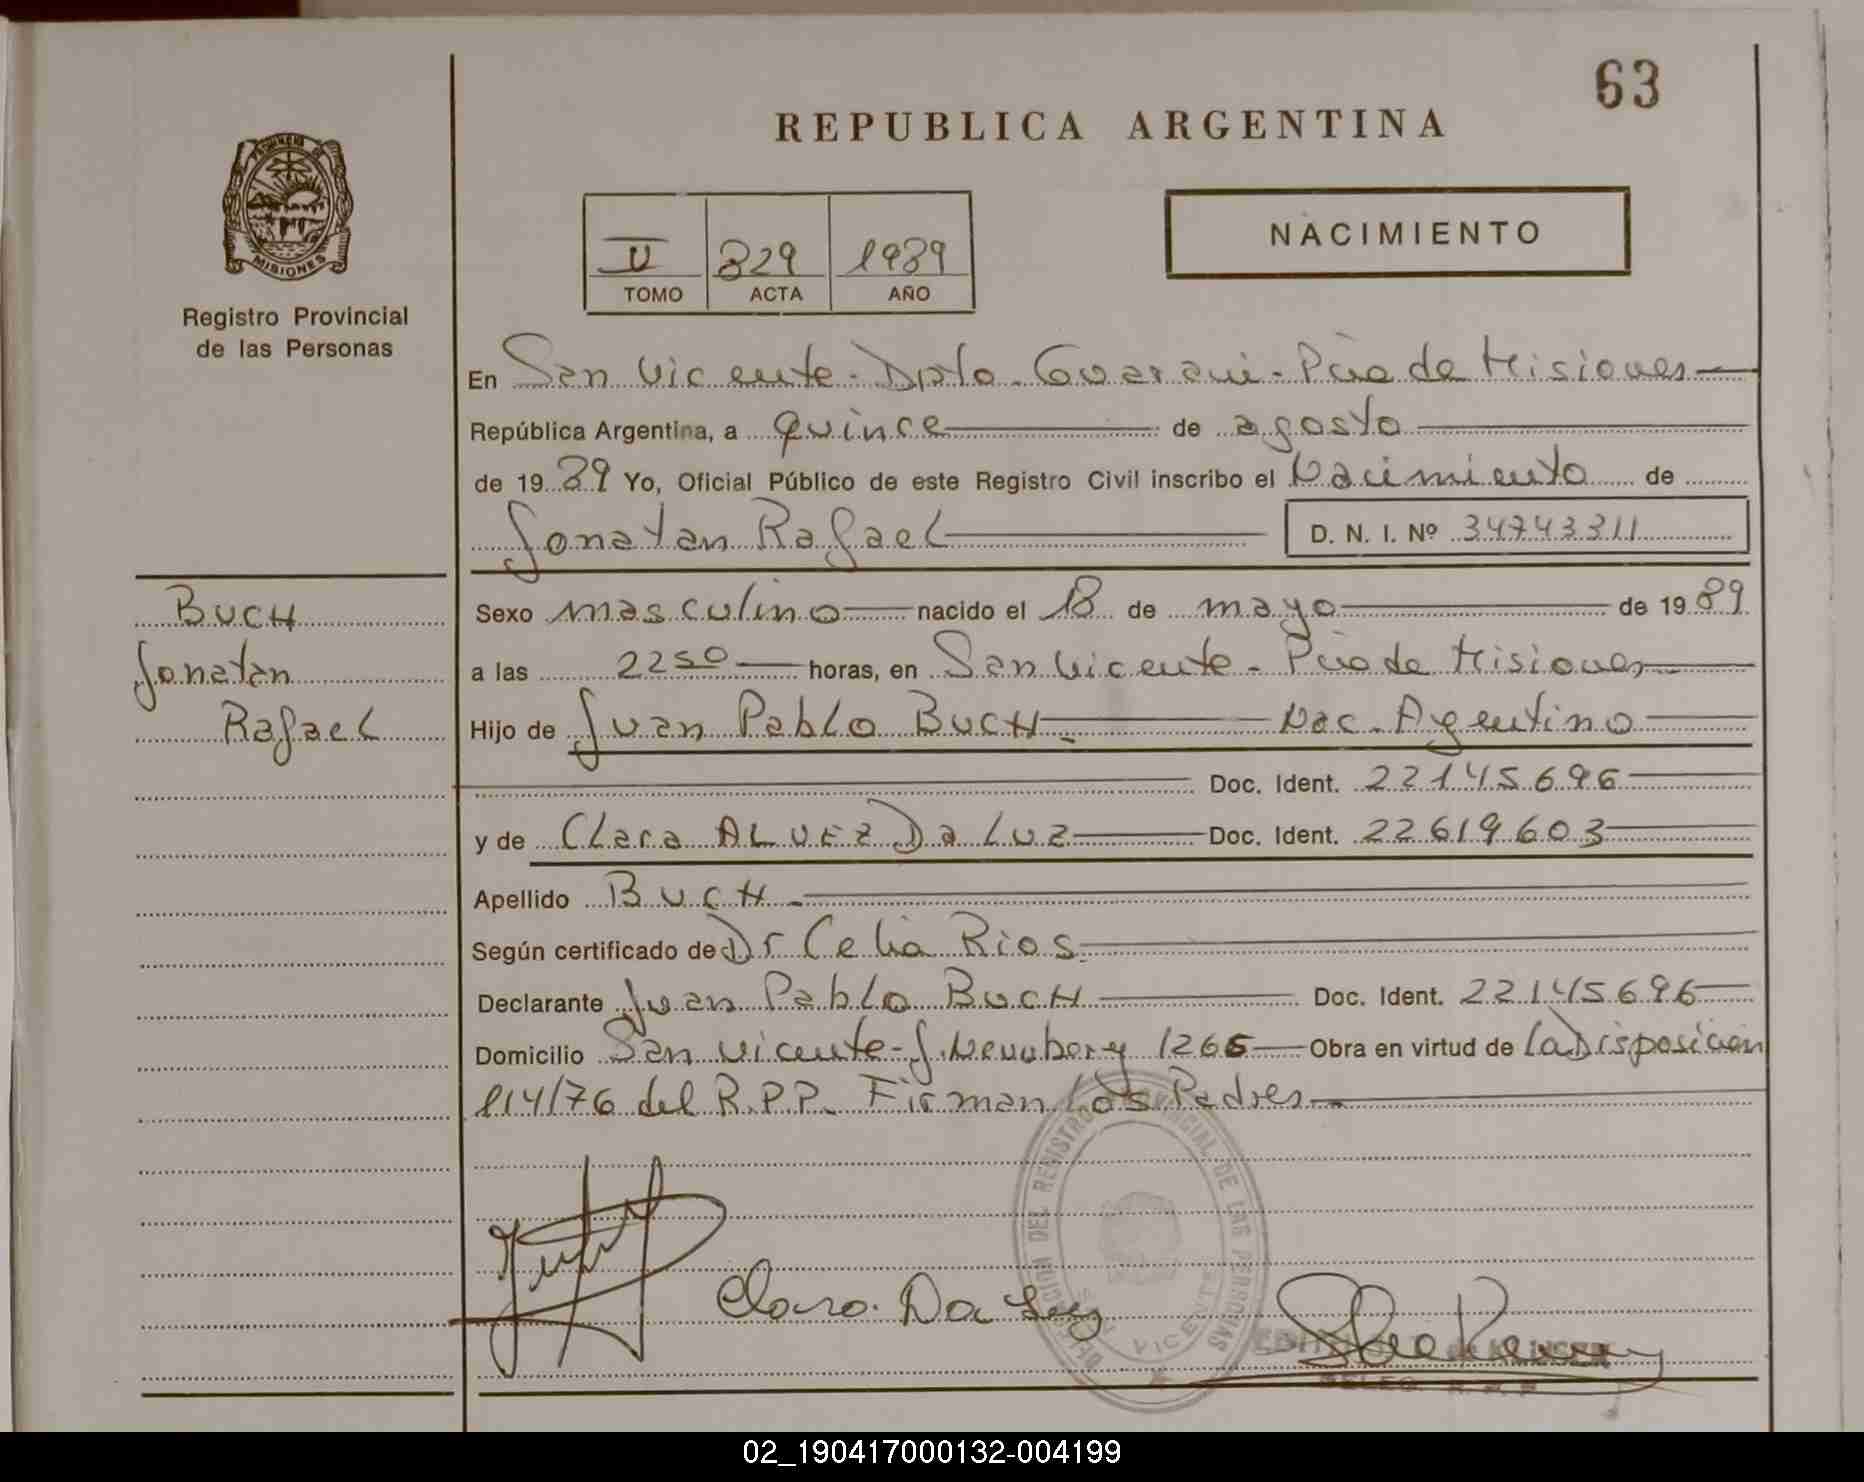 63
REPUBLICA ARGENTINA
PROVINCIA DE
MISIONES
Registro Provincial
de las Personas
II 829 1989
TOMO ACTA AÑO
NACIMIENTO
En San Vicente - Dpto. Guarani - Pcia de Misiones
República Argentina, a quince de agosto
de 19 89 Yo, Oficial Público de este Registro Civil inscribo el Nacimiento de
Jonatan Rafael D. N. I. Nº 34743311
BUCH
Jonatan
Rafael
Sexo masculino nacido el 18 de mayo de 19 89
a las 2250 horas, en San Vicente - Pcia de Misiones
Hijo de Juan Pablo BUCH Nac. Agentino
Doc. Ident. 22145696
y de Clara ALVEZ Da Luz Doc. Ident. 22619603
Apellido BUCH
Según certificado de Dr Celia Rios
Declarante Juan Pablo BUCH Doc. Ident. 22145696
Domicilio San Vicente - J. 1266 Obra en virtud de la Disposicion
114/76 del R.P.P. Firman los Padres
Clara Da Luz
DELEGACION DEL REGISTRO PROVINCIAL DE LAS PERSONAS
SAN VICENTE
DELEG. R. P. P.
02_190417000132-004199